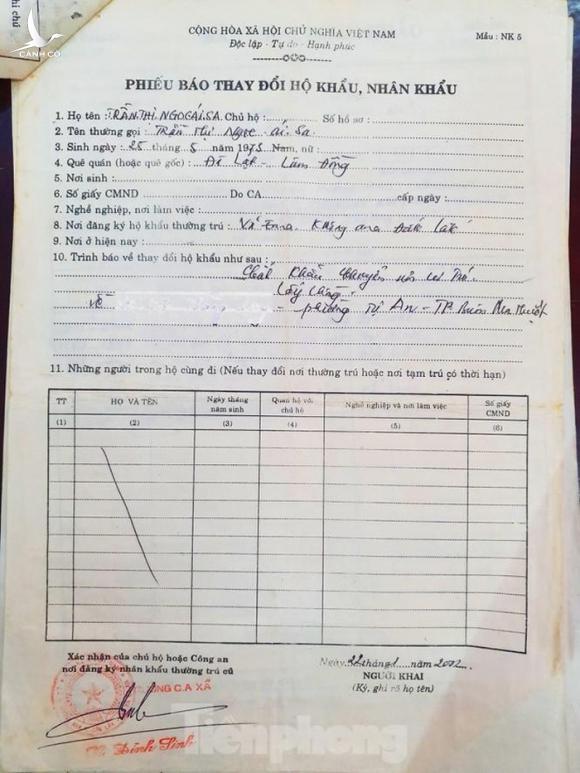 hi chú
CÁNH CÒ
CỘNG HÒA XÃ HỘI CHỦ NGHĨA VIỆT NAM
Độc lập - Tự do - Hạnh phúc
Mẫu: NK 5
PHIẾU BÁO THAY ĐỔI HỘ KHẨU, NHÂN KHẨU
1. Họ tên : TRẦN THỊ NGỌC ÁI SA. Chủ hộ : Số hồ sơ :
2. Tên thường gọi : Trần Thị Ngọc Ái Sa.
3. Sinh ngày : 25 tháng 5 năm 1975 Nam, nữ :
4. Quê quán (hoặc quê gốc) : Đà Lạt - Lâm Đồng
5. Nơi sinh :
6. Số giấy CMND Do CA cấp ngày :
7. Nghề nghiệp, nơi làm việc :
8. Nơi đăng ký hộ khẩu thường trú : Krông ana Đăk Lăk
9. Nơi ở hiện nay :
10. Trình báo về thay đổi hộ khẩu như sau :
khẩu chuyển nơi cư trú.
về - phường Tự An - TP Buôn Ma Thuột
11. Những người trong hộ cùng đi (Nếu thay đổi nơi thường trú hoặc nơi tạm trú có thời hạn)
TT HỌ VÀ TÊN Ngày tháng năm sinh Quan hệ với chủ hộ Nghề nghiệp và nơi làm việc Số giấy CMND
(1) (2) (3) (4) (5) (6)
Xác nhận của chủ hộ hoặc Công an
nơi đăng ký nhân khẩu thường trú cũ
C.A XÃ
Đình Sinh
Ngày 22 tháng 1 năm 2002
NGƯỜI KHAI
(Ký, ghi rõ họ tên)
Tiênphong